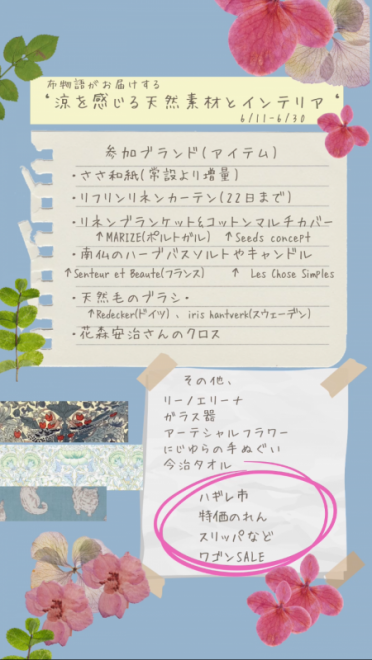 布物語がお届けする
“涼を感じる天然素材とインテリア”
6/11-6/30
参加ブランド(アイテム)
・ささ和紙(常設より増量)
・リフリンリネンカーテン(22日まで)
・リネンブランケット&コットンマルチカバー
↑MARIZE(ポルトガル) ↑Seeds concept
・南仏のハーブバスソルトやキャンドル
↑Senteur et Beaute(フランス) ↑ Les Chose Simples
・天然毛のブラシ・
↑Redecker(ドイツ)、iris hantverk(スウェーデン)
・花森安治さんのクロス
その他、
リーノエリーナ
ガラス器
アーテシャルフラワー
にじゆらの手ぬぐい
今治タオル
ハギレ市
特価のれん
スリッパなど
ワゴンSALE